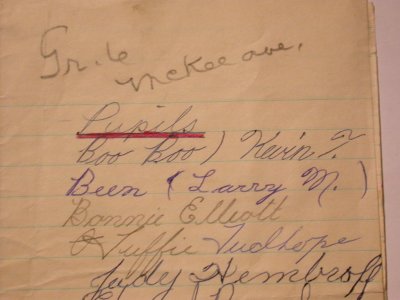 Gr. 6
McKee ave.
Pupils
Boo Boo) Kevin T.
Been (Larry M.)
Bonnie Elliott
Tuffie Tudhope
Judy Hembroff